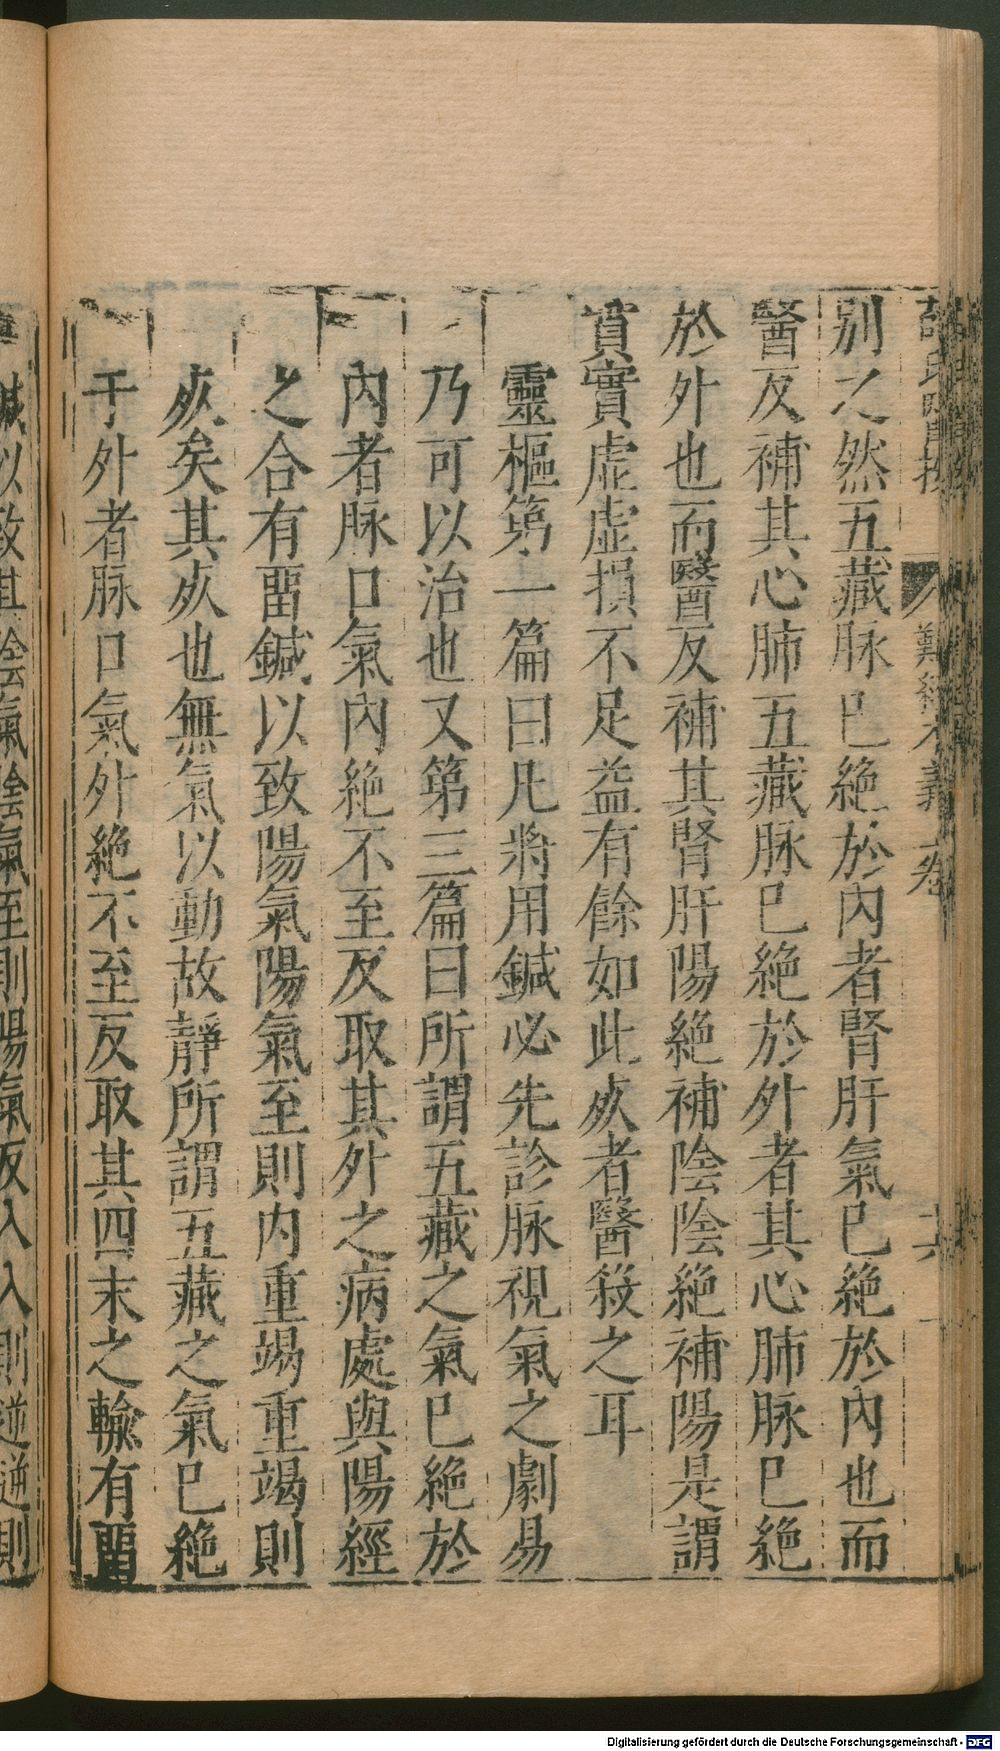 難經本義 卷
別之然五藏脉已絕於內者腎肝氣已絕於內也而
醫反補其心肺五藏脉已絕於外者其心肺脉已絕
於外也而醫反補其腎肝陽絕補陰陰絕補陽是謂
實實虛虛損不足益有餘如此死者醫殺之耳
靈樞第一篇曰凡將用鍼必先診脉視氣之劇易
乃可以治也又第三篇曰所謂五藏之氣已絕於
內者脉口氣內絕不至反取其外之病處與陽經
之合有畱鍼以致陽氣陽氣至則內重竭重竭則
死矣其死也無氣以動故靜所謂五藏之氣已絕
于外者脉口氣外絕不至反取其四末之輸有畱
鍼以致其陰氣陰氣至則陽氣反入入則逆逆則
Digitalisierung gefördert durch die Deutsche Forschungsgemeinschaft - DFG